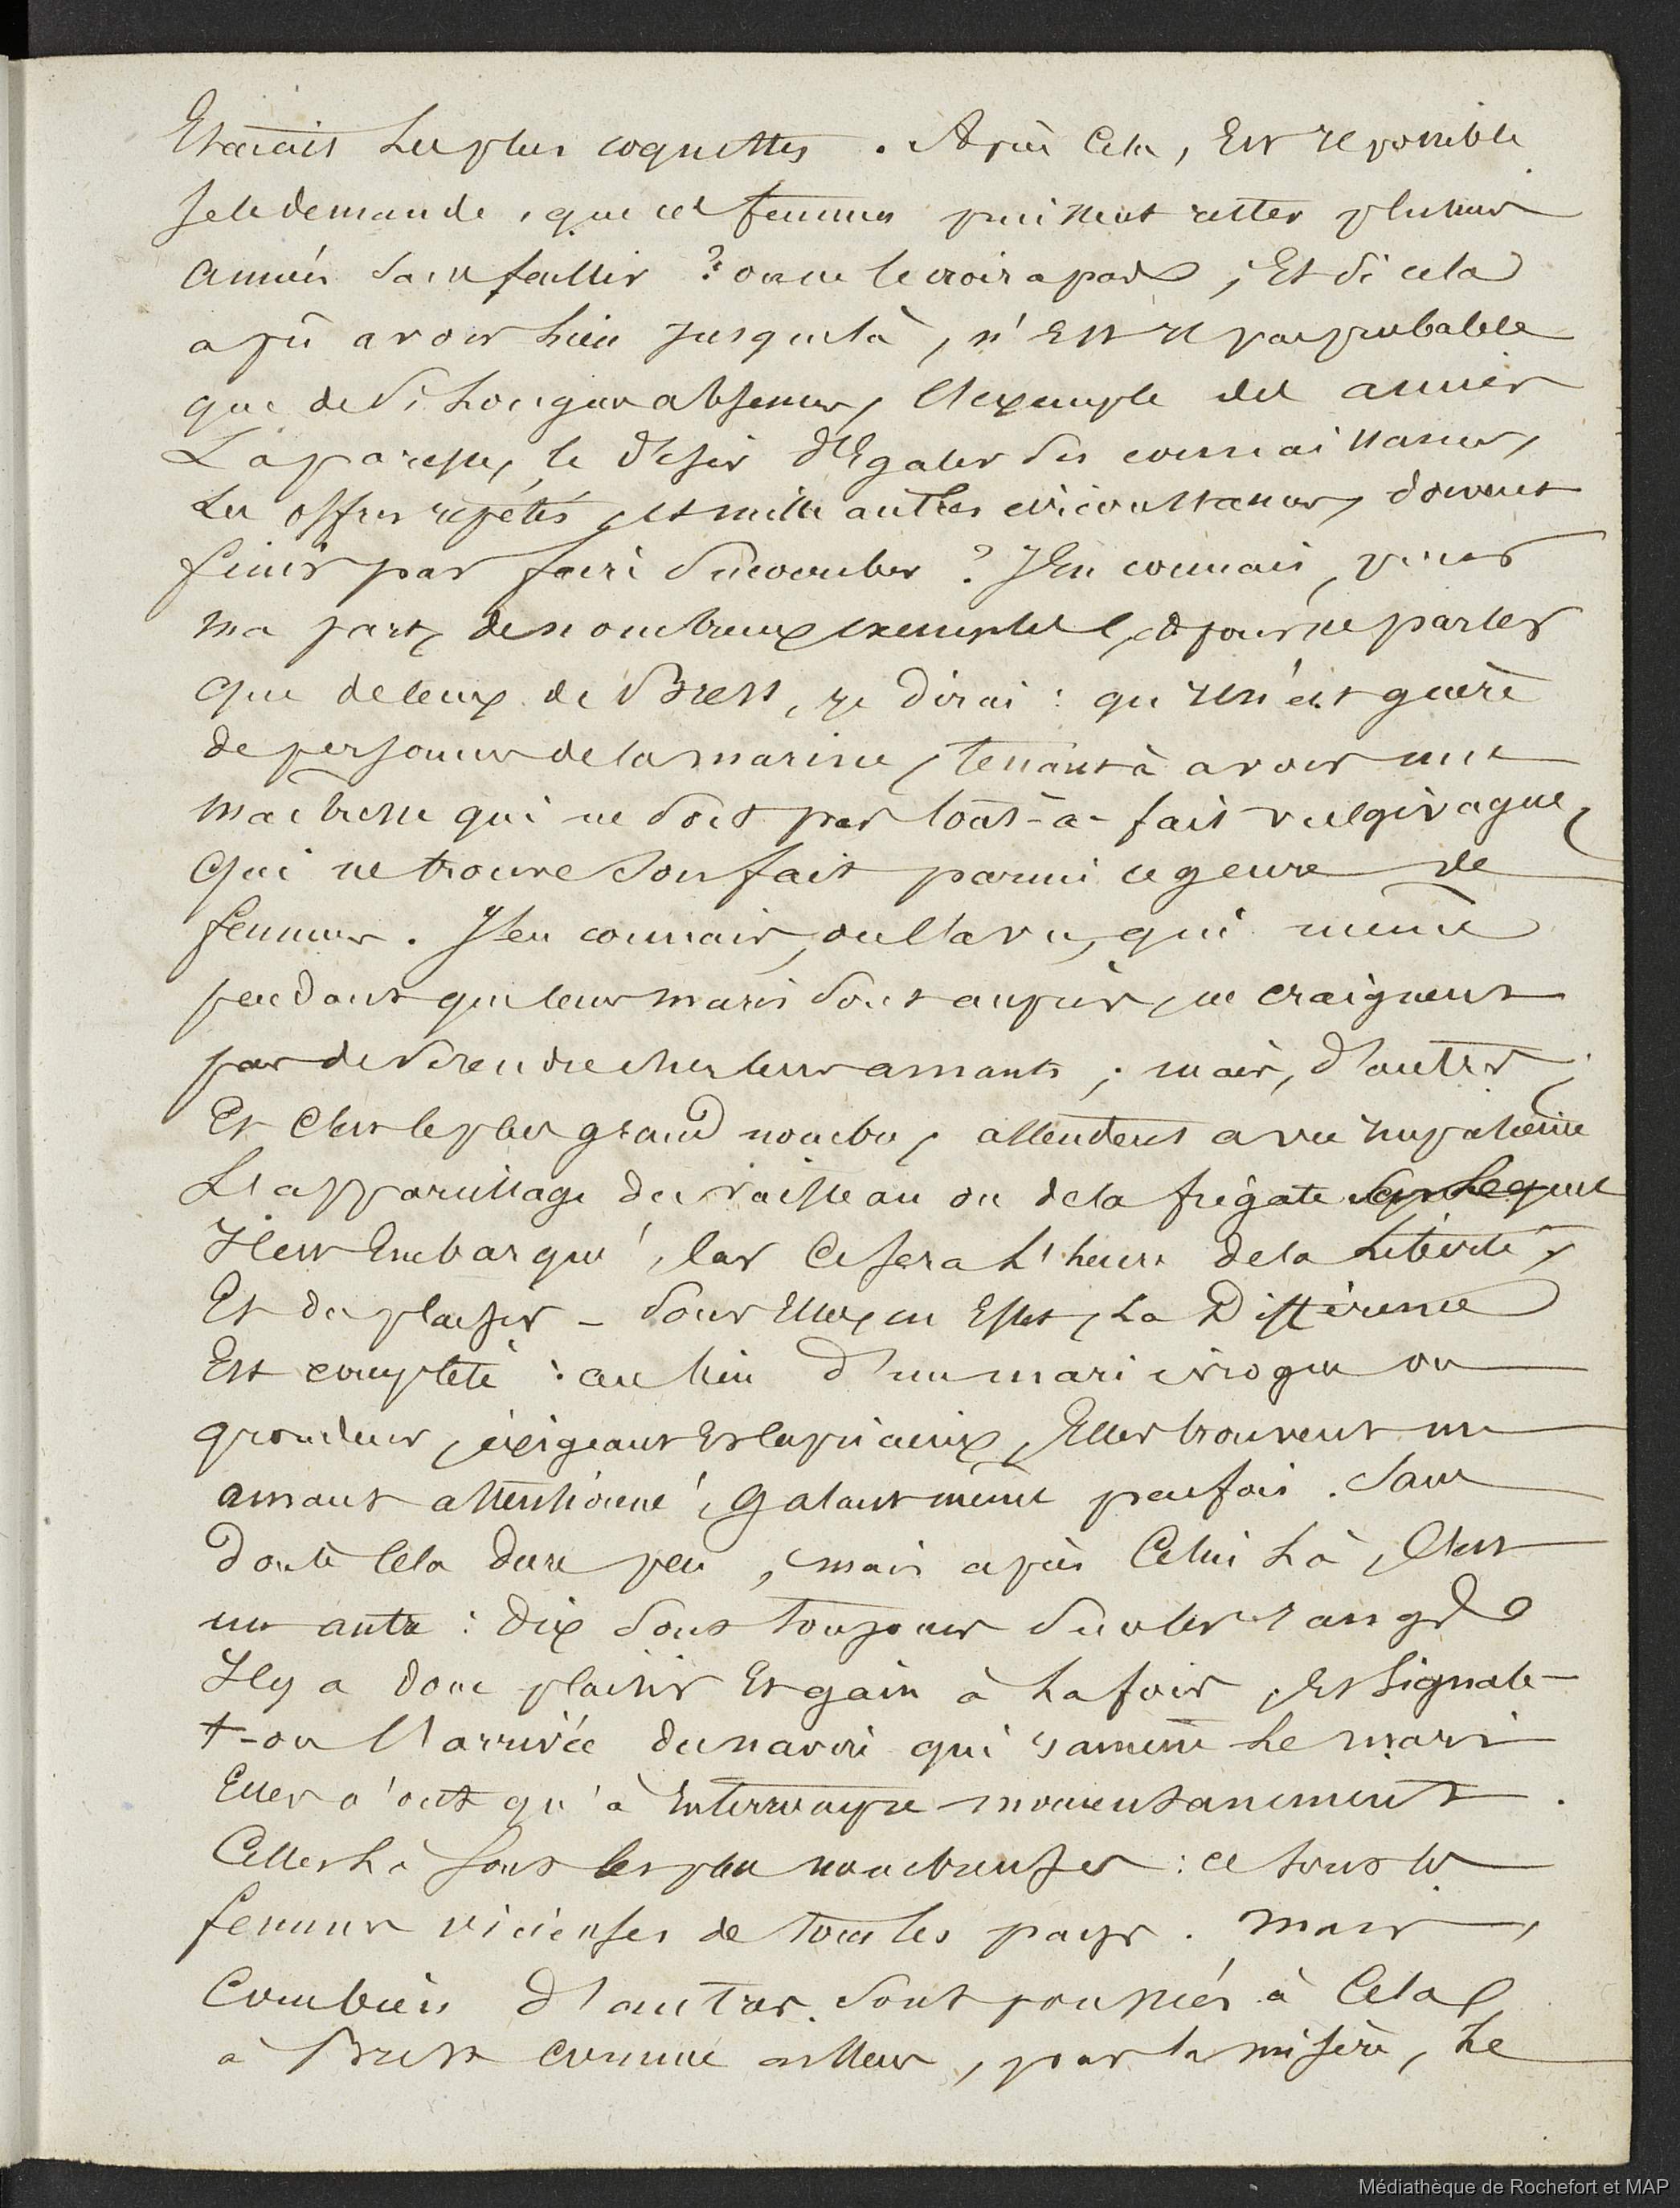 Etaient les plus coquettes. Après Cela, Est il possible
Je le demande, que ces femmes puissent rester plusieurs
années sans faillir ? on ne le croira pas, Et si cela
a pû avoir lieu jusque là, n'Est il pas probable
que de si longues absences, l'exemple des amies
La paresse, le désir d'Egaler ses connaissances,
Les offres repétés, et mille autres circonstances, doivent
finir par faire succomber ? J'En connais, pour
ma part, de nombreux exemples, et pour ne parler
que de ceux de Brest, je dirai : qu'il n'est guère
de personnes de la marine, tenant à avoir une
maîtresse qui ne soit pas tout-à-fait vulgivague,
qui ne trouve son fait parmi ce genre de
femmes. J'en connais, on l'a vu, qui même
pendant que leurs maris sont auprès, ne craignent
pas de se rendre chez leurs amants ; mais, d'autres,
Et C'est le plus grand nombre, attendent avec impatience
L'appareillage du vaisseau ou de la frégate sur lequel
Il est Embarqué, Car Ce sera l'heure de la liberté,
Et du plaisir - Pour Elles, en Effet, la Différence
Est complète : au lieu d'un mari ivrogne ou
grondeur, exigeant Et Capricieux, Elles trouvent un
amant attentionné, galant même parfois. Sans
doute Cela dure peu, mais après Celui là, C'est
un autre : dix sont toujours sur les rangs
Il y a donc plaisir Et gain à la fois, Et signale-
t-on l'arrivée du navire qui ramène le mari
Elles n'ont qu'à Interrompre momentanement.
Celles là sont les plus nombreuses : ce sont les
femmes vicieuses de tous les pays. Mais,
Combien d'autres sont poussées à Cela,
à Brest comme ailleurs, par la misère, le